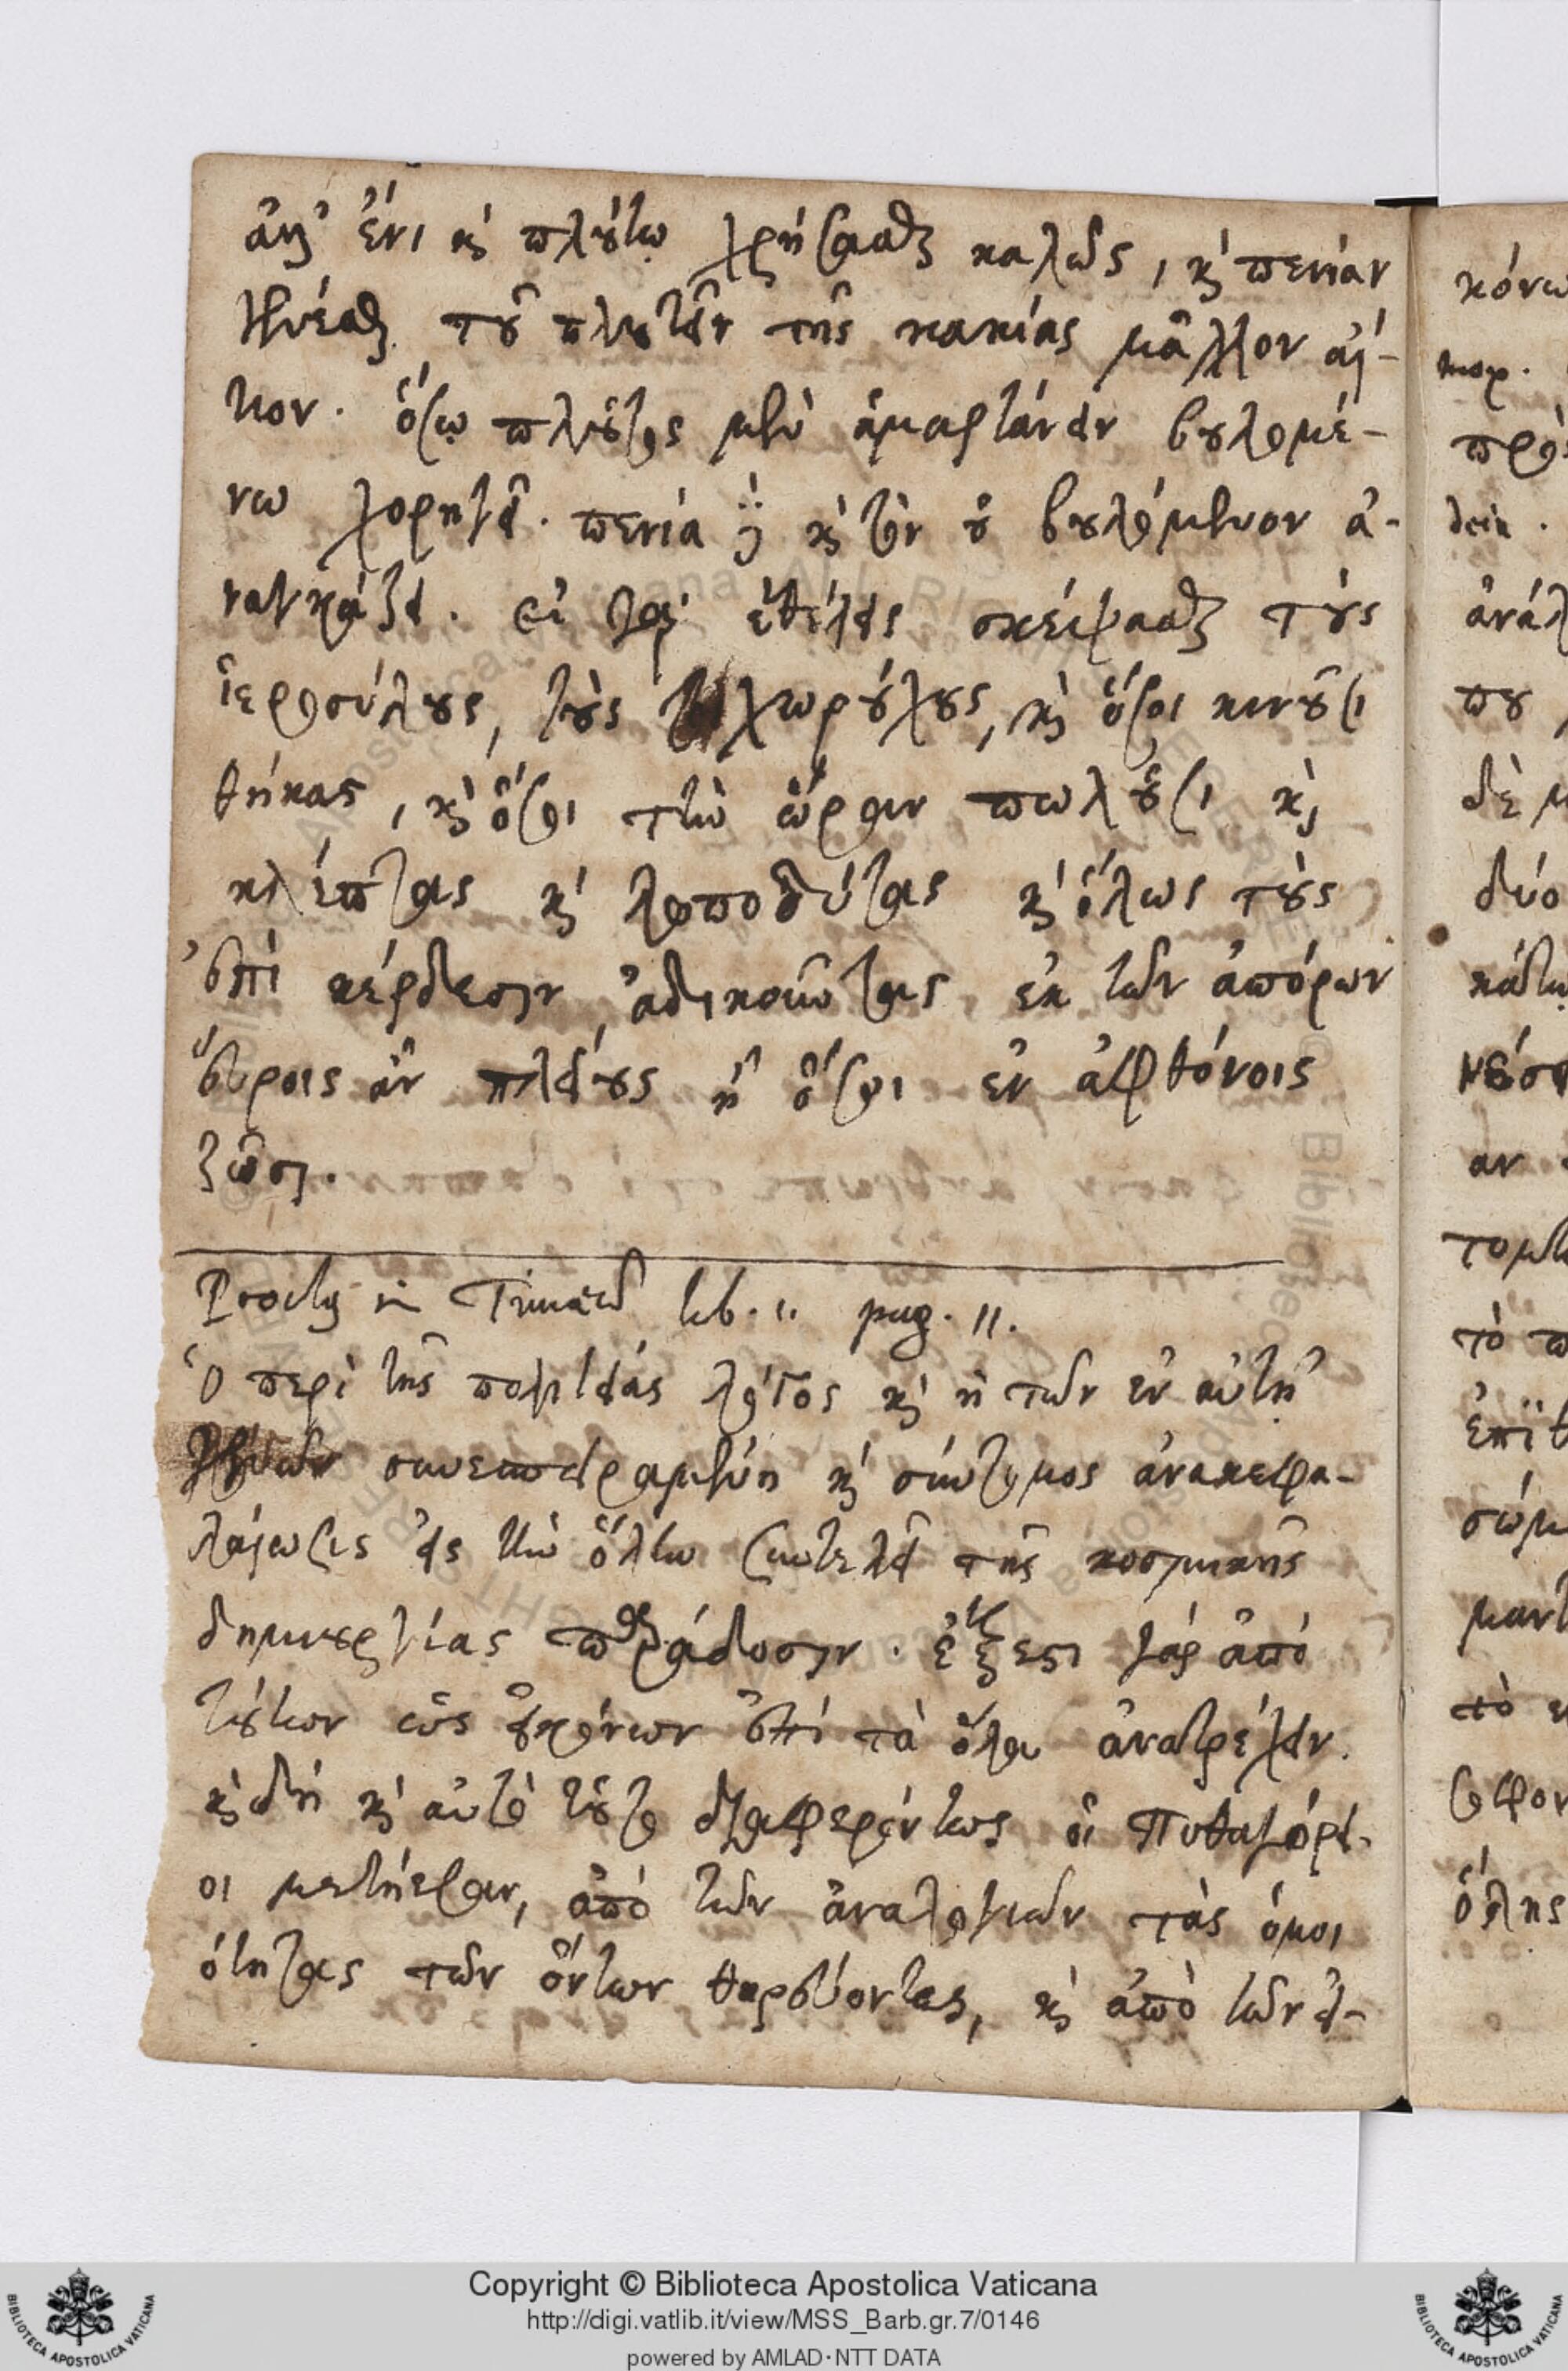 ἀλλ' ἔνι καὶ πλούτῳ χρήσασθαι καλῶς, καὶ πενίαν
γενέσθαι τοῦ πλουτεῖν τῆς κακίας μᾶλλον αἴ-
τιον. ὅσῳ πλοῦτος μὲν ἁμαρτάνειν βουλομέ-
νω χορηγεῖ. πενία δὲ καὶ τὸν οὐ βουλόμενον ἀ-
ναγκάζει. εἰ γὰρ ἐθέλεις σκέψασθαι τοὺς
ἱεροσύλους, τοὺς τοιχωρύχους, καὶ ὅσοι κινοῦσι
θήκας, καὶ ὅσοι τὴν ὥραν πωλοῦσι καὶ
κλέπτας καὶ λωποδύτας καὶ ὅλως τοὺς
ἐπὶ κέρδεσιν, ἀδικοῦντας ἐκ τῶν ἀπόρων
εὕροις ἂν πλείους ἢ ὅσοι ἐν ἀφθόνοις
ζῶσι.
Proclus in Timaeum lib. 1. pag. 11.
Ὁ περὶ τῆς πολιτείας λόγος καὶ ἡ τῶν ἐν αὐτῇ
γενῶν συνεσπειραμένη καὶ σύντομος ἀνακεφα-
λαίωσις εἰς τὴν ὅλην συντελεῖ τῆς κοσμικῆς
δημιουργίας παράδοσιν. ἔξεστι γὰρ ἀπὸ
τούτων ὡς εἰκόνων ἐπὶ τὰ ὅλα ἀνατρέχειν.
καὶ δὴ καὶ αὐτὸ τοῦτο διαφερόντως οἱ Πυθαγόρει-
οι μετῄεσαν, ἀπὸ τῶν ἀναλογιῶν τὰς ὁμοι
ότητας τῶν ὄντων θηρεύοντες, καὶ ἀπὸ τῶν εἰ-
Copyright © Biblioteca Apostolica Vaticana
http://digi.vatlib.it/view/MSS_Barb.gr.7/0146
powered by AMLAD·NTT DATA
BIBLIOTECA APOSTOLICA VATICANA
BIBLIOTECA APOSTOLICA VATICANA